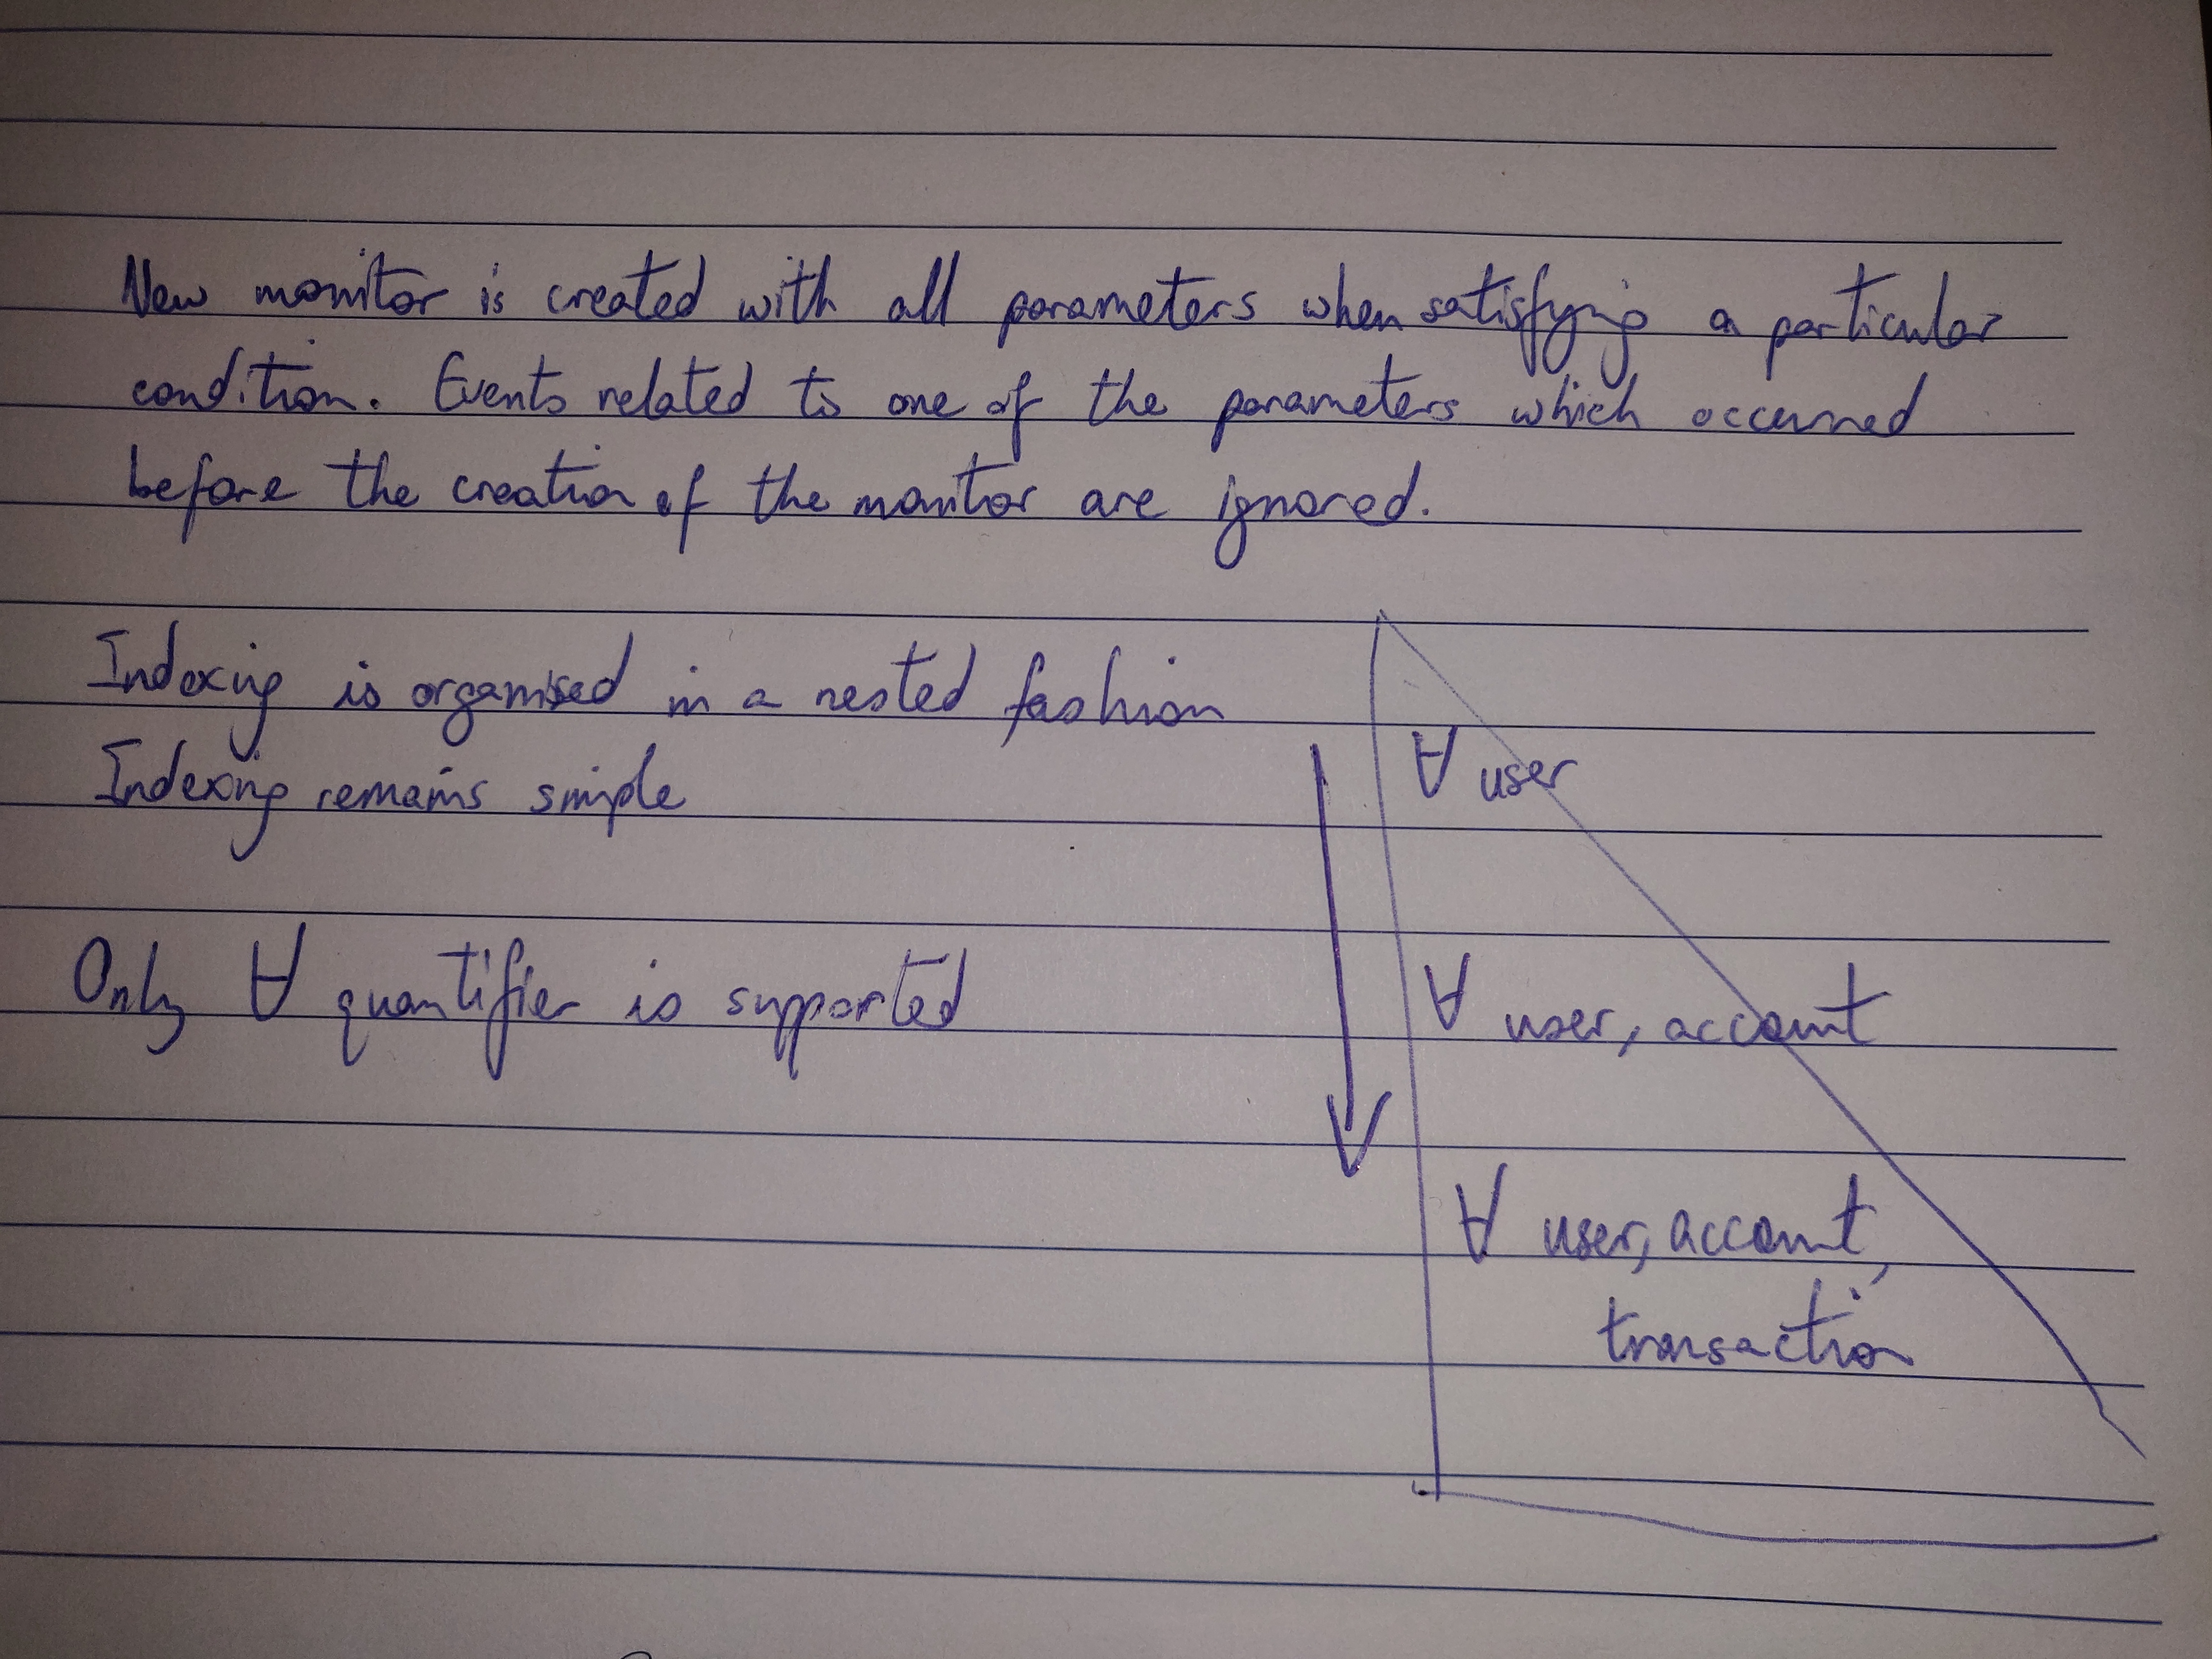 New monitor is created with all parameters when satisfying a particular
condition. Events related to one of the parameters which occurred
before the creation of the monitor are ignored.
Indexing is organised in a nested fashion
Indexing remains simple
Only ∀ quantifier is supported
∀ user
∀ user, account
∀ user, account,
transaction